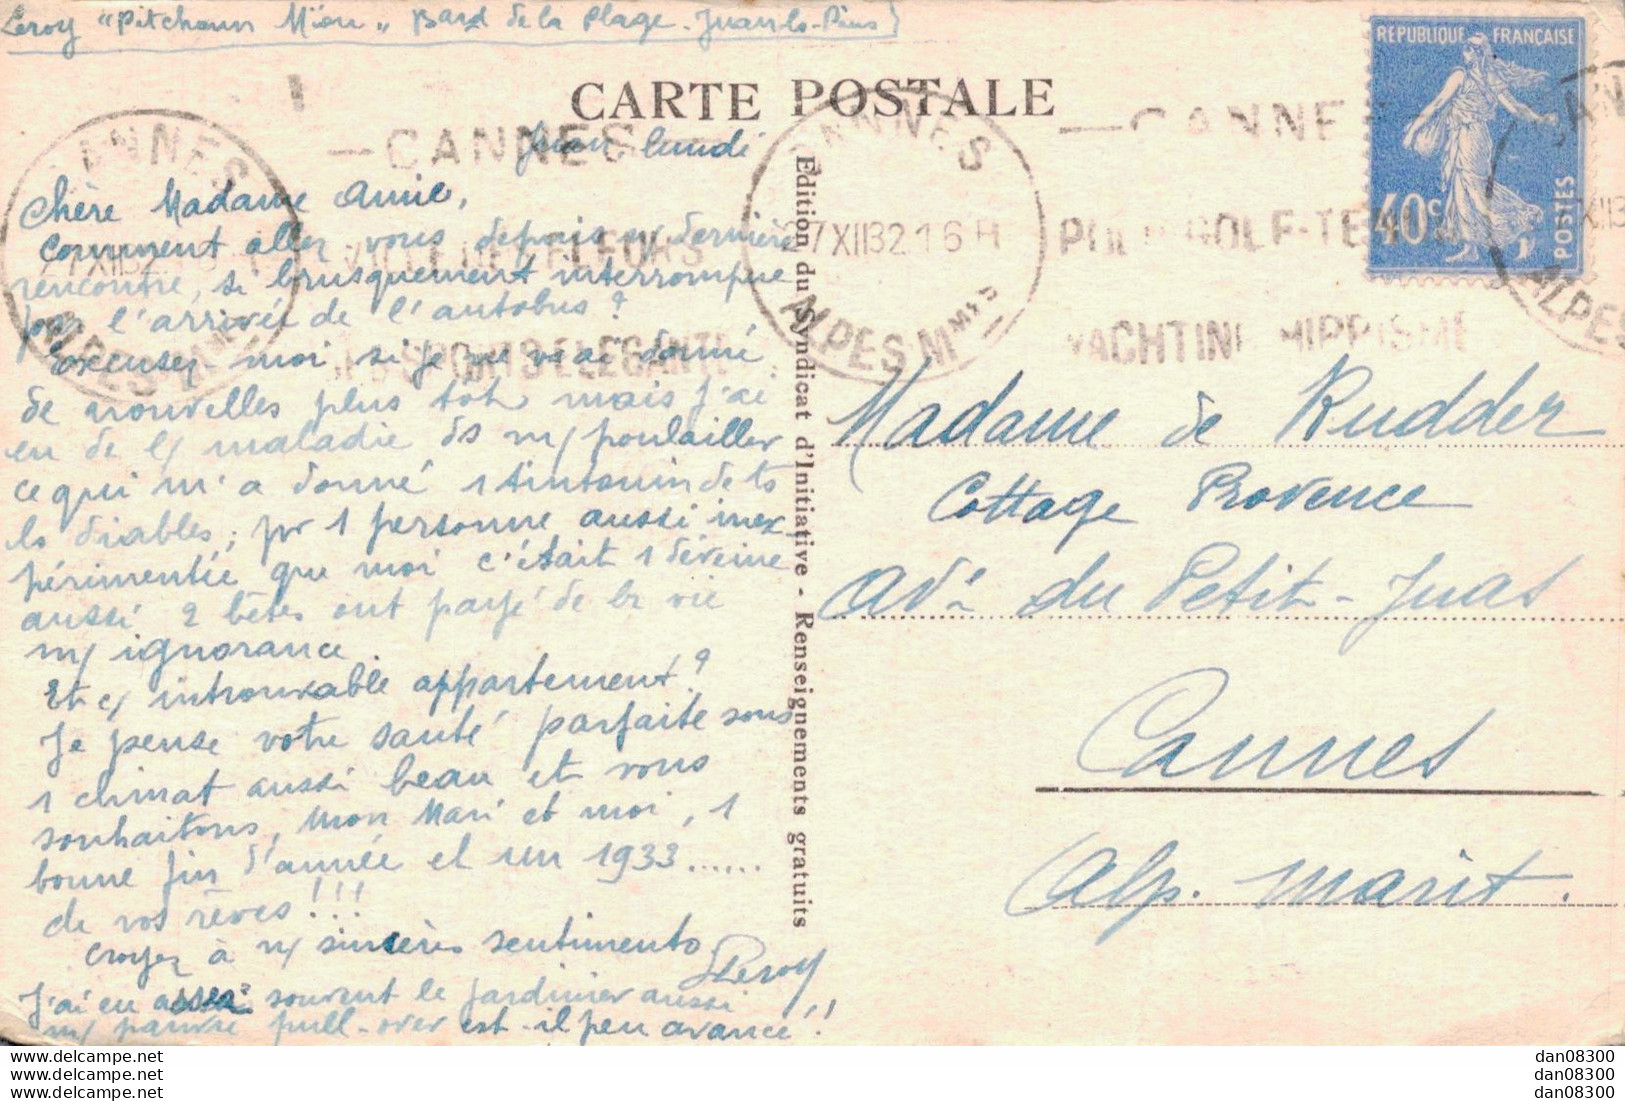 Leroy "Pitchoun Mïou" Bard de la Plage - Juan-ls-Pins
CARTE POSTALE
RÉPUBLIQUE FRANÇAISE
40c
POSTES
CANNES
7 XII 32 16 H
ALPES MMES
— CANNES —
VILLE DES FLEURS
SPORTS ELEGANTE
CANNES
7 XII 32 16 H
ALPES MMES
— CANNES
POLO-GOLF-TENNIS
YACHTING HIPPISME
CANNES
ALPES
Juan lundi
Chère Madame Amie,
Comment aller-vous depuis n/ dernière
rencontre, si brusquement interrompue
par l'arrivée de l'autobus?
Excusez-moi si je ne v/s ai donné
de nouvelles plus tôt mais j'ai
eu de la maladie ds m/ poulailler
ce qui m'a donné 1 tintouin de ts
ls diables; pr 1 personne aussi inex-
périmentée que moi c'était 1 déveine
aussi 2 bêtes ont payé de la vie
m/ ignorance.
Et c/ introuvable appartement?
Je pense votre santé parfaite sous
1 climat aussi beau et vous
souhaitons, mon Mari et moi, 1
bonne fin d'année et un 1933......
de vos rêves!!!
Croyez à m/ sincères sentiments
Leroy
J'ai eu assez souvent le jardinier aussi
m/ pauvre pull-over est-il peu avancé!!
Edition du Syndicat d'Initiative - Renseignements gratuits
Madame de Rudder
Cottage Provence
Ave du Petit-Juas
Cannes
Alp. marit.
delcampe.net
dan08300
delcampe.net
dan08300
delcampe.net
dan08300